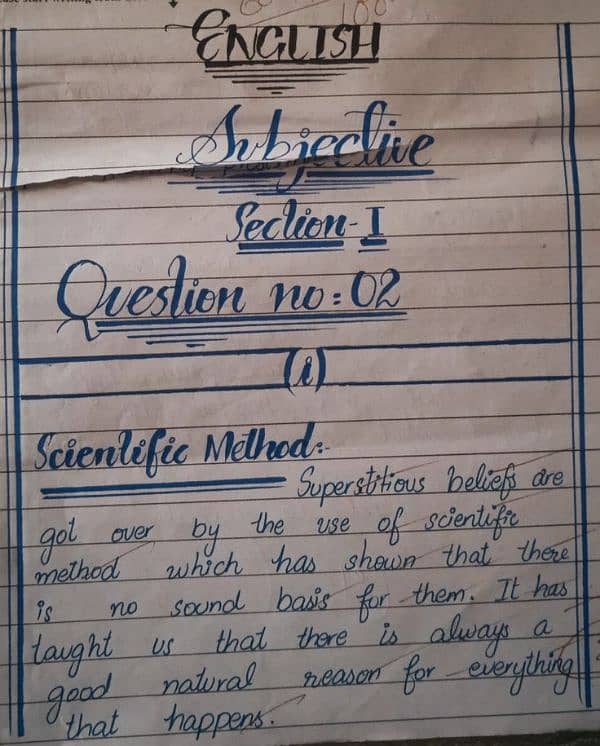 ENGLISH
Subjective
Section-I
Question no: 02
(i)
Scientific Method:-
Superstitious beliefs are
got over by the use of scientific
method which has shown that there
is no sound basis for them. It has
taught us that there is always a
good natural reason for everything
that happens.